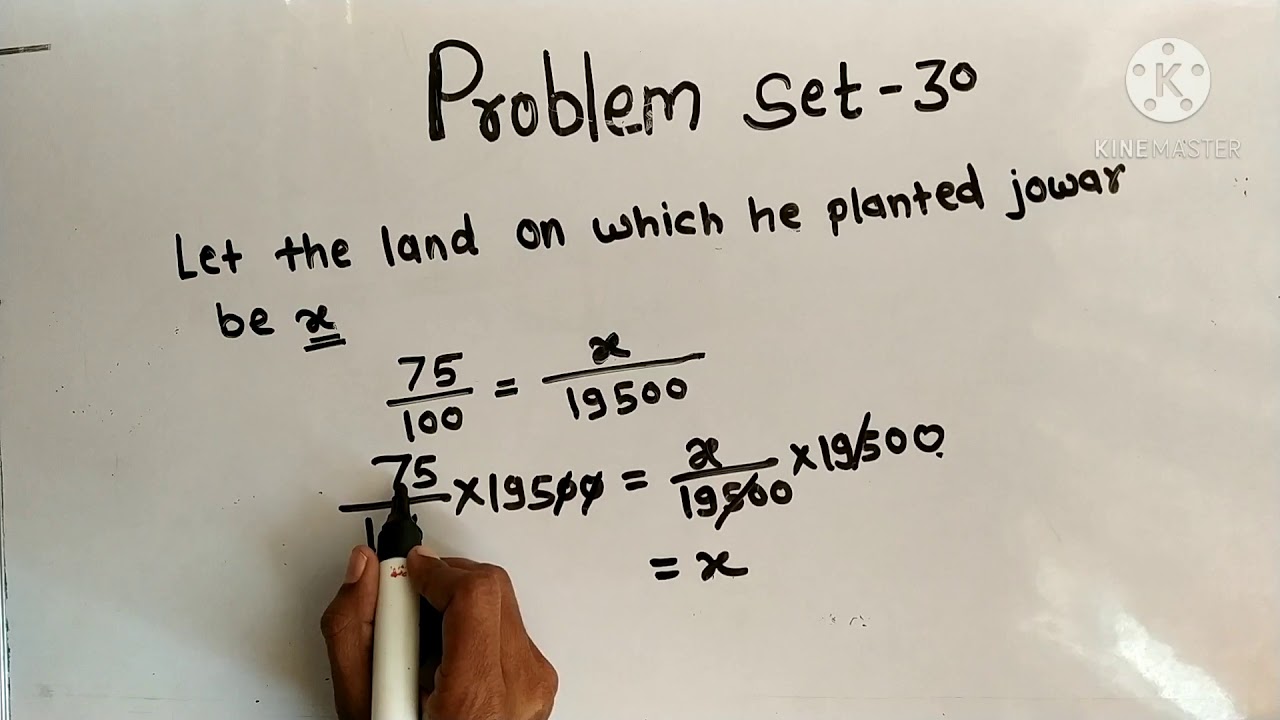 Problem Set-30
K
KINEMASTER
Let the land on which he planted jowar
be x
75/100 = x/19500
75/1 × 19500 = x/19500 × 19500
= x